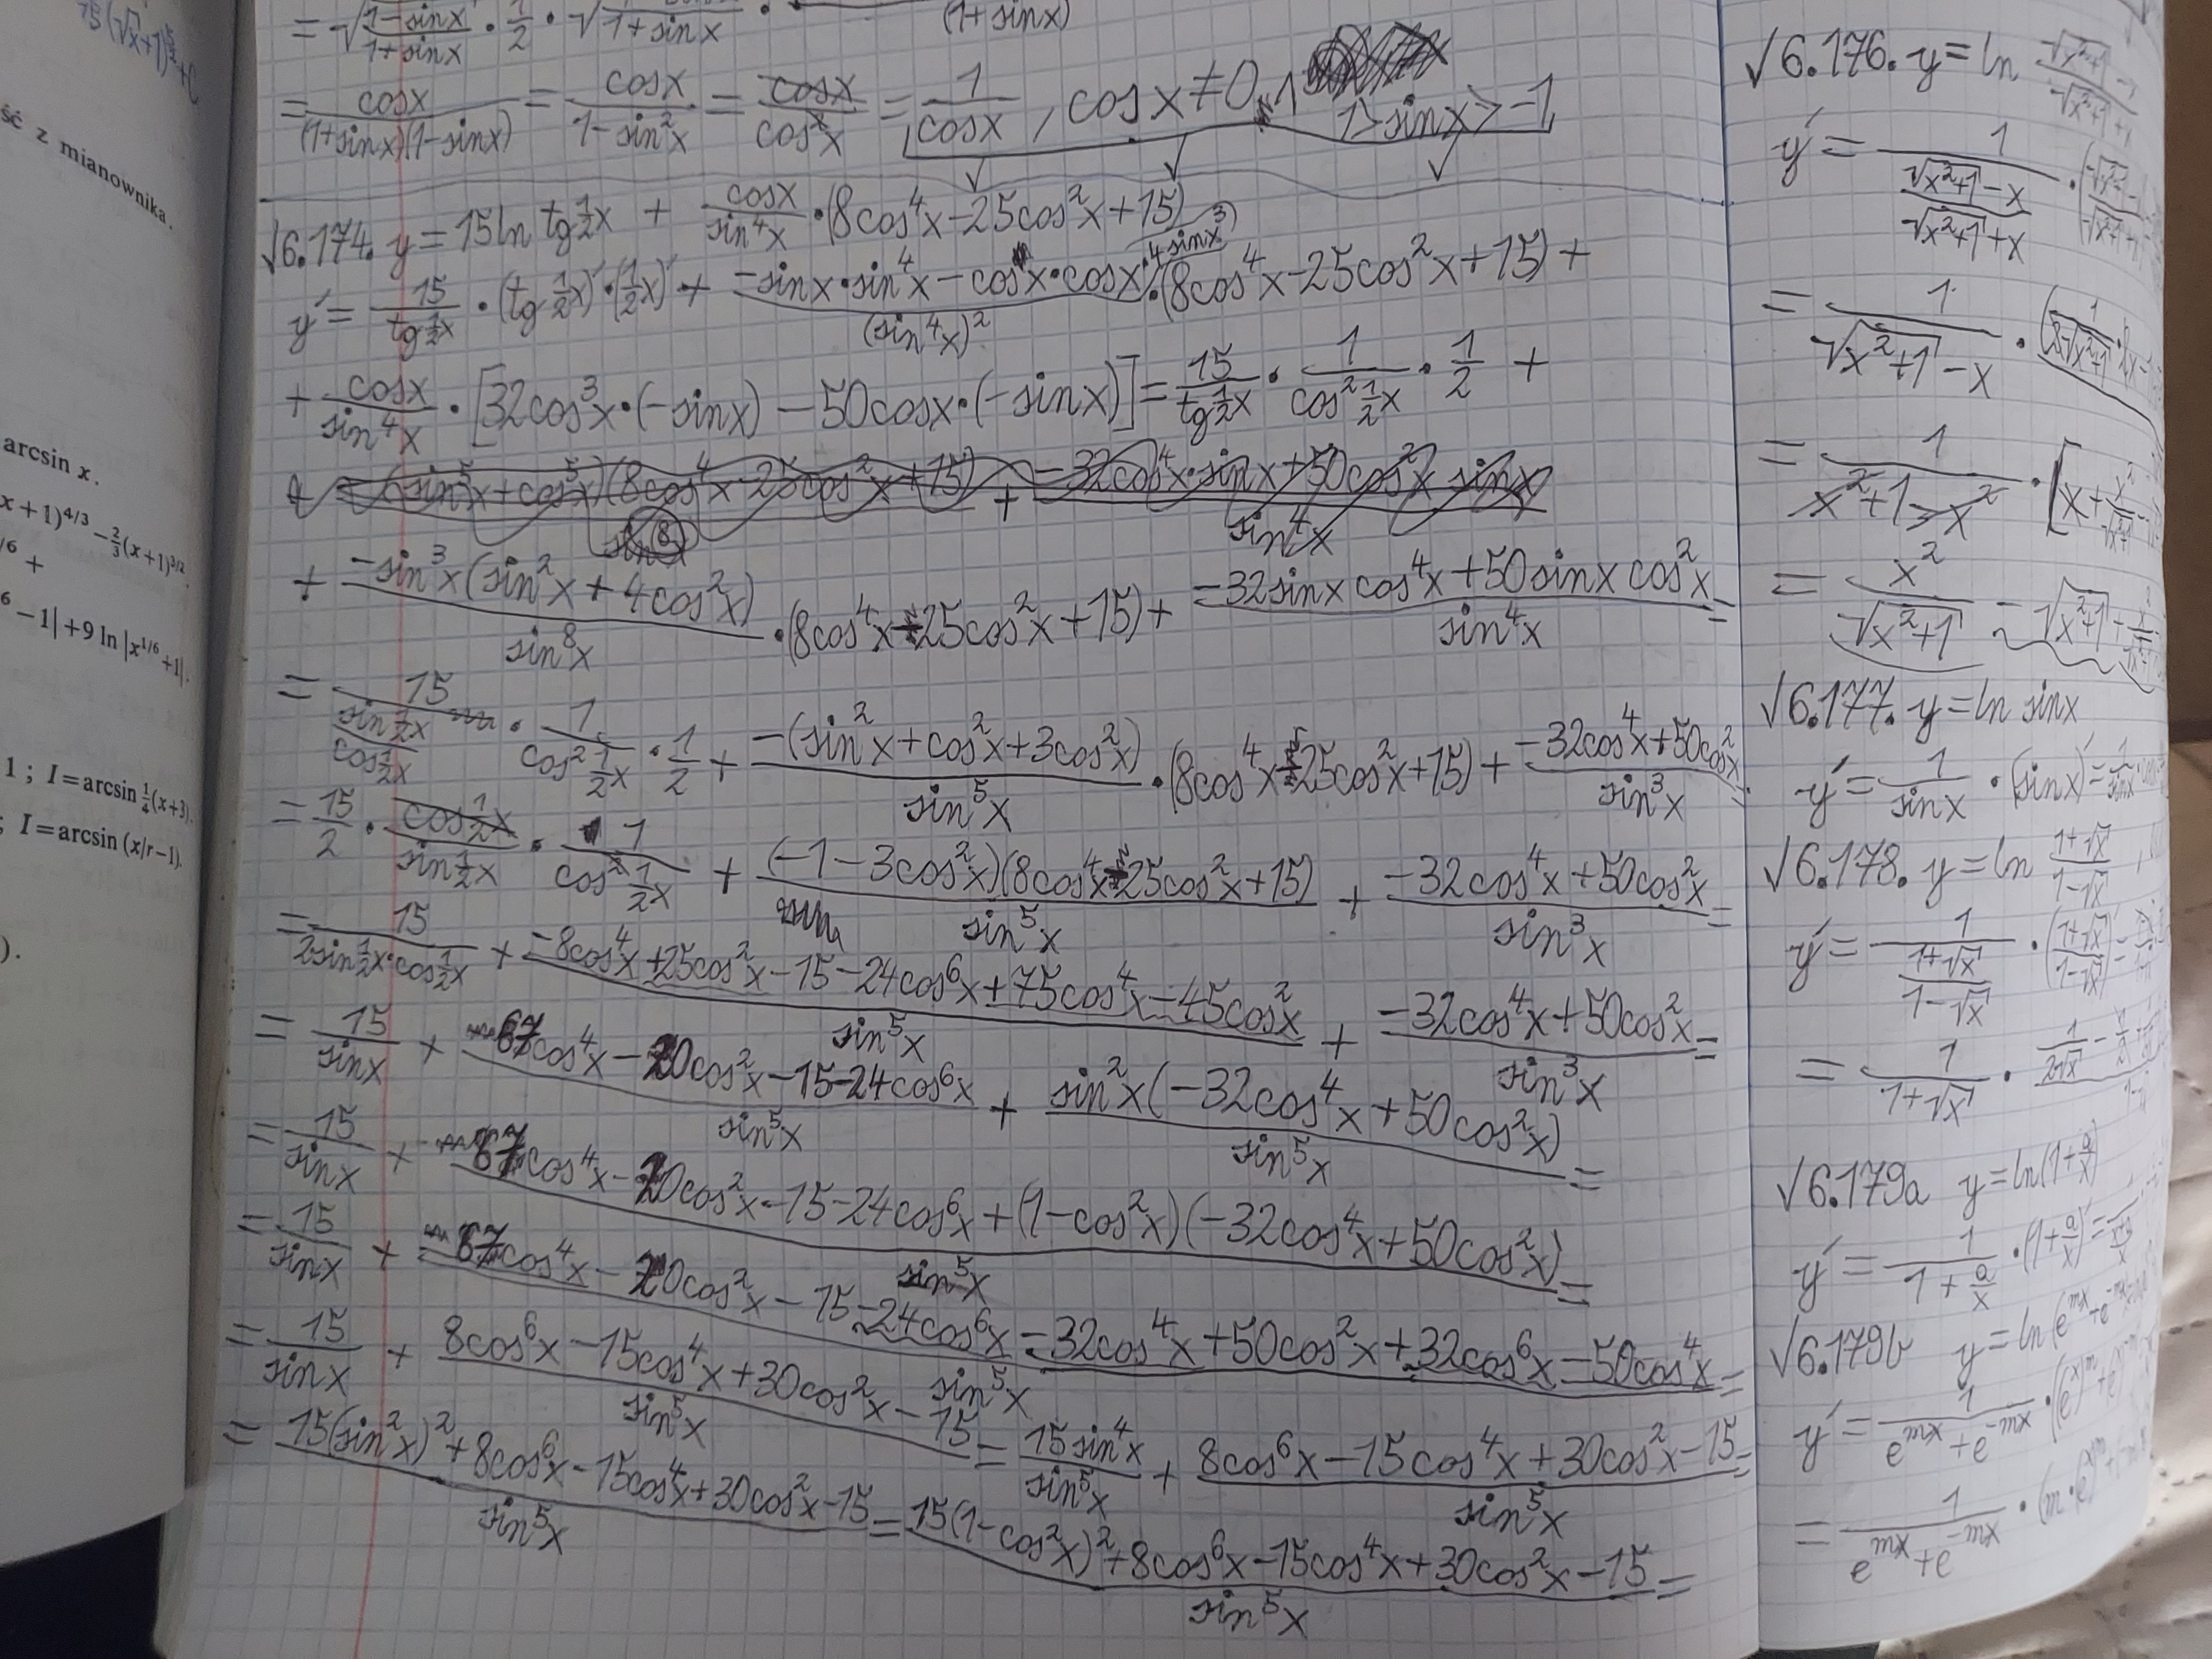 15(√x+1)
ść z mianownika.
arcsin x.
x+1)^{4/3} − \frac{2}{3}(x+1)^{3/2}.
/6 +
6 −1|+9 ln |x^{1/6}+1|.
1 ; I=arcsin \frac{1}{4}(x+3).
; I=arcsin (x/r−1).
).
= √\frac{1−sinx}{1+sinx} · \frac{1}{2} · √\frac{}{1+sinx} · \frac{}{(1+sinx)}
= \frac{cosx}{(1+sinx)(1−sinx)} = \frac{cosx}{1−sin²x} = \frac{cosx}{cos²x} = \frac{1}{cosx} , cosx≠0 ∧ 1>sinx>−1
√6.174. y = 15 ln tg\frac{1}{2}x + \frac{cosx}{sin⁴x} · (8cos⁴x−25cos²x+15)
y' = \frac{15}{tg\frac{1}{2}x} · (tg\frac{1}{2}x)' · (\frac{1}{2}x)' + \frac{−sinx·sin⁴x−cosx·cosx·4sinx³}{(sin⁴x)²} · (8cos⁴x−25cos²x+15) +
+ \frac{cosx}{sin⁴x} · [32cos³x·(−sinx) −50cosx·(−sinx)] = \frac{15}{tg\frac{1}{2}x} · \frac{1}{cos²\frac{1}{2}x} · \frac{1}{2} +
+ \frac{−sin³x(sin²x+4cos²x)}{sin⁸x} · (8cos⁴x−25cos²x+15) + \frac{−32sinx cos⁴x+50sinx cos²x}{sin⁴x} =
= \frac{15}{\frac{sin\frac{1}{2}x}{cos\frac{1}{2}x}} · \frac{1}{cos²\frac{1}{2}x} · \frac{1}{2} + \frac{−(sin²x+cos²x+3cos²x)}{sin⁵x} · (8cos⁴x−25cos²x+15) + \frac{−32cos⁴x+50cos²x}{sin³x} =
= \frac{15}{2} · \frac{cos\frac{1}{2}x}{sin\frac{1}{2}x} · \frac{1}{cos²\frac{1}{2}x} + \frac{(−1−3cos²x)(8cos⁴x−25cos²x+15)}{sin⁵x} + \frac{−32cos⁴x+50cos²x}{sin³x} =
= \frac{15}{2sin\frac{1}{2}x·cos\frac{1}{2}x} + \frac{−8cos⁴x+25cos²x−15−24cos⁶x+75cos⁴x−45cos²x}{sin⁵x} + \frac{−32cos⁴x+50cos²x}{sin³x} =
= \frac{15}{sinx} + \frac{67cos⁴x−20cos²x−15−24cos⁶x}{sin⁵x} + \frac{sin²x(−32cos⁴x+50cos²x)}{sin⁵x} =
= \frac{15}{sinx} + \frac{67cos⁴x−20cos²x−15−24cos⁶x+(1−cos²x)(−32cos⁴x+50cos²x)}{sin⁵x} =
= \frac{15}{sinx} + \frac{67cos⁴x−20cos²x−15−24cos⁶x−32cos⁴x+50cos²x+32cos⁶x−50cos⁴x}{sin⁵x} =
= \frac{15}{sinx} + \frac{8cos⁶x−15cos⁴x+30cos²x−15}{sin⁵x} = \frac{15sin⁴x}{sin⁵x} + \frac{8cos⁶x−15cos⁴x+30cos²x−15}{sin⁵x} =
= \frac{15(sin²x)²+8cos⁶x−15cos⁴x+30cos²x−15}{sin⁵x} = \frac{15(1−cos²x)²+8cos⁶x−15cos⁴x+30cos²x−15}{sin⁵x} =
√6.176. y = ln \frac{√x²+1 −x}{√x²+1 +x}
y' = \frac{1}{\frac{√x²+1−x}{√x²+1+x}} ·
= \frac{1}{√x²+1−x} · (\frac{1}{2√x²+1}·2x
= \frac{1}{x²+1−x²} · [x+
= \frac{x²}{√x²+1} − √x²+1
√6.177. y = ln sinx
y' = \frac{1}{sinx} · (sinx)' = \frac{1}{sinx}
√6.178. y = ln \frac{1+√x}{1−√x}
y' = \frac{1}{\frac{1+√x}{1−√x}} · (\frac{1+√x}{1−√x})' =
= \frac{1}{1+√x} · \frac{1}{2√x}
√6.179a y = ln(1+\frac{a}{x})
y' = \frac{1}{1+\frac{a}{x}} · (1+\frac{a}{x})' =
√6.179b y = ln(e^{mx}+e^{−mx})
y' = \frac{1}{e^{mx}+e^{−mx}} ·
= \frac{1}{e^{mx}+e^{−mx}} ·